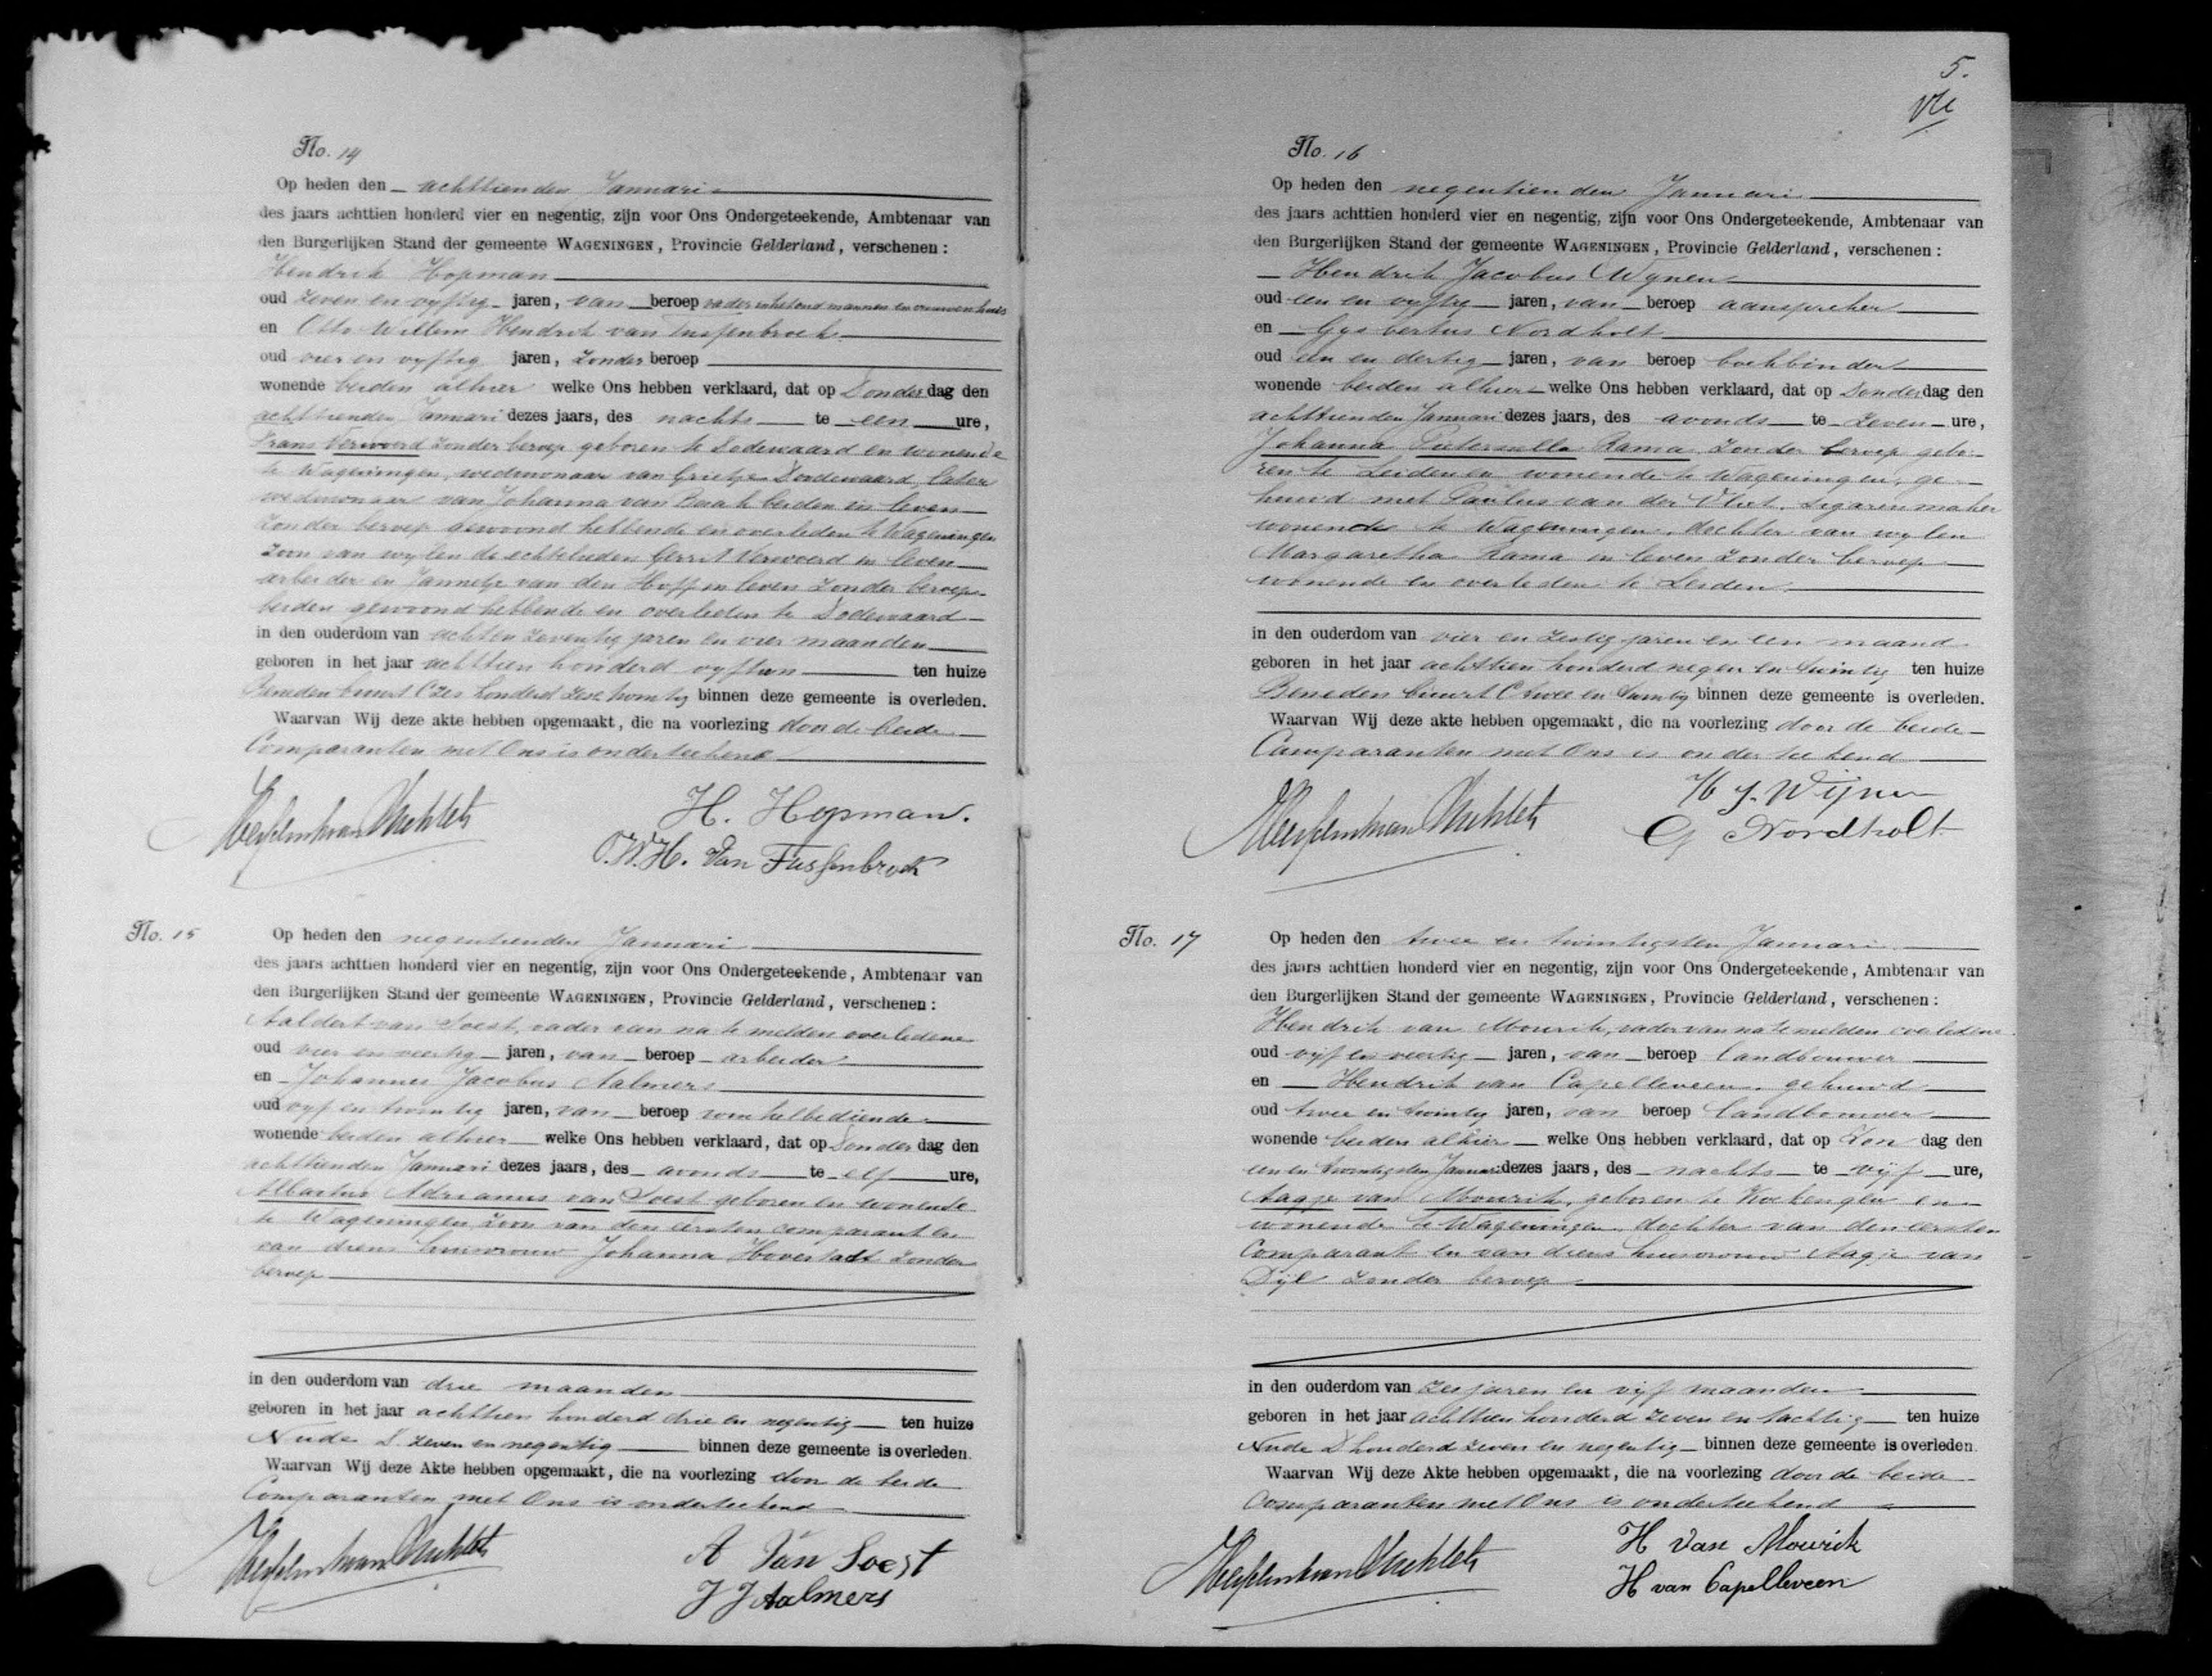 No. 14
Op heden den achttienden Januari
des jaars achttien honderd vier en negentig, zijn voor Ons Ondergeteekende, Ambtenaar van
den Burgerlijken Stand der gemeente WAGENINGEN, Provincie Gelderland, verschenen:
Hendrik Hopman
oud zeven en vyftig jaren, van beroep vader in het oud mannen en vrouwenhuis
en Otto Willem Hendrik van Tussenbroek
oud vier en vyftig jaren, zonder beroep
wonende beiden alhier welke Ons hebben verklaard, dat op Donderdag den
achttienden Januari dezes jaars, des nachts te een ure,
Frans Verwoerd zonder beroep geboren te Dodewaard en wonende
te Wageningen, weduwnaar van Grietje Dodewaard, later
weduwnaar van Johanna van Baak beiden in leven
zonder beroep gewoond hebbende en overleden te Wageningen
zoon van wylen de echtelieden Gerrit Verwoerd in leven
arbeider en Jannetje van den Hoff in leven zonder beroep
beiden gewoond hebbende en overleden te Dodewaard
in den ouderdom van acht en zeventig jaren en vier maanden
geboren in het jaar achttien honderd vyftien ten huize
Benedenbuurt C zes honderd zes twintig binnen deze gemeente is overleden.
Waarvan Wij deze akte hebben opgemaakt, die na voorlezing door de beide
Comparanten met Ons is onderteekend
H. Hopman.
O.W.H. Van Tussenbroek
No. 15
Op heden den negentienden Januari
des jaars achttien honderd vier en negentig, zijn voor Ons Ondergeteekende, Ambtenaar van
den Burgerlijken Stand der gemeente WAGENINGEN, Provincie Gelderland, verschenen:
Aaldert van Soest, vader van na te melden overledene
oud vier en veertig jaren, van beroep arbeider
en Johannes Jacobus Aalmers
oud vyf en twintig jaren, van beroep winkelbediende
wonende beiden alhier welke Ons hebben verklaard, dat op Donderdag den
achttienden Januari dezes jaars, des avonds te elf ure,
Albartus Adrianus van Soest geboren en wonende
te Wageningen, zoon van den eersten comparant en
van diens huisvrouw Johanna Hoverstadt zonder
beroep
in den ouderdom van drie maanden
geboren in het jaar achttien honderd drie en negentig ten huize
Nude D zeven en negentig binnen deze gemeente is overleden.
Waarvan Wij deze Akte hebben opgemaakt, die na voorlezing door de beide
Comparanten met Ons is onderteekend
A Van Soest
J J Aalmers
5.
No. 16
Op heden den negentienden Januari
des jaars achttien honderd vier en negentig, zijn voor Ons Ondergeteekende, Ambtenaar van
den Burgerlijken Stand der gemeente WAGENINGEN, Provincie Gelderland, verschenen:
Hendrik Jacobus Wynen
oud een en vyftig jaren, van beroep aanspreker
en Gysbertus Nordholt
oud een en dertig jaren, van beroep boekbinder
wonende beiden alhier welke Ons hebben verklaard, dat op Donderdag den
achttienden Januari dezes jaars, des avonds te zeven ure,
Johanna Pieternella Rama zonder beroep gebo-
ren te Leiden en wonende te Wageningen, ge-
huwd met Paulus van der Vliet, sigarenmaker
wonende te Wageningen, dochter van wylen
Margaretha Rama in leven zonder beroep
wonende en overleden te Leiden
in den ouderdom van vier en zestig jaren en een maand
geboren in het jaar achttien honderd negen en twintig ten huize
Beneden buurt C twee en twintig binnen deze gemeente is overleden.
Waarvan Wij deze akte hebben opgemaakt, die na voorlezing door de beide
Comparanten met Ons is onderteekend
H J. Wijnen
G Nordholt
No. 17
Op heden den twee en twintigsten Januari
des jaars achttien honderd vier en negentig, zijn voor Ons Ondergeteekende, Ambtenaar van
den Burgerlijken Stand der gemeente WAGENINGEN, Provincie Gelderland, verschenen:
Hendrik van Mourik, vader van na te melden overledene
oud vijf en veertig jaren, van beroep landbouwer
en Hendrik van Capelleveen, gehuwd
oud twee en twintig jaren, van beroep landbouwer
wonende beiden alhier welke Ons hebben verklaard, dat op Zondag den
een en twintigsten Januari dezes jaars, des nachts te vijf ure,
Aagje van Mourik, geboren te Kockengen en
wonende te Wageningen, dochter van den eersten
Comparant en van diens huisvrouw Aagje van
Dijl zonder beroep
in den ouderdom van zes jaren en vijf maanden
geboren in het jaar achttien honderd zeven en tachtig ten huize
Nude D honderd zeven en negentig binnen deze gemeente is overleden.
Waarvan Wij deze Akte hebben opgemaakt, die na voorlezing door de beide
Comparanten met Ons is onderteekend
H van Mourik
H van Capelleveen